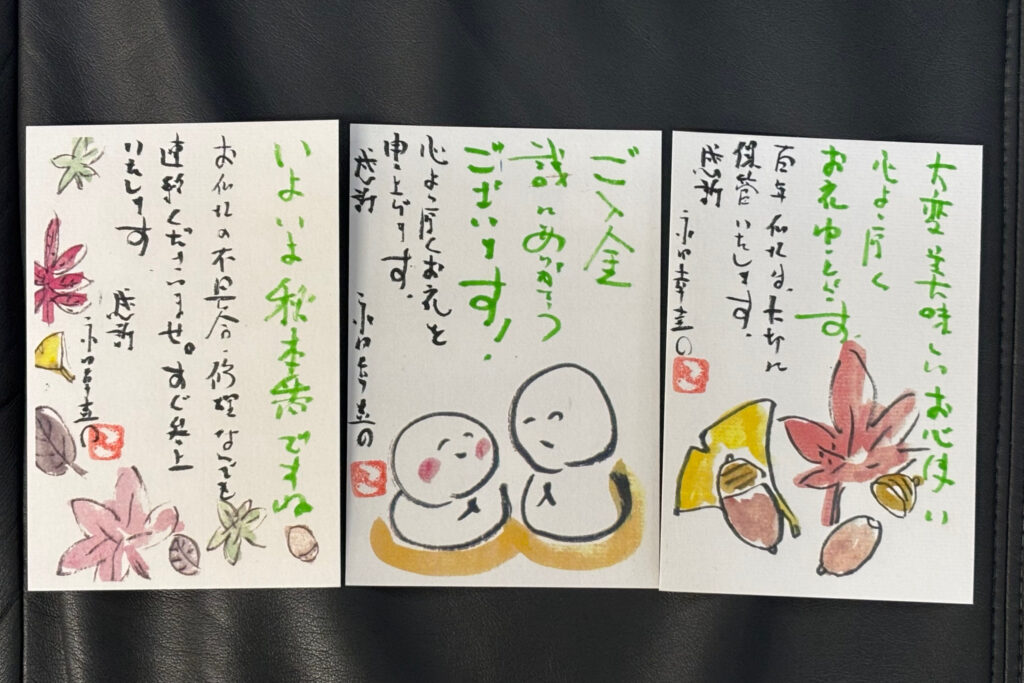 いよいよ秋本番ですね
お仏壇の不具合・修理なんでも
連絡くださいませ。すぐ参上
いたします
感謝
ご入金
誠にありがとう
ございます!
心より厚くお礼を
申し上げます。
感謝
大変美味しいお心使い
心より厚く
お礼申します。
百年仏壇は、大切に
保管いたします。
感謝